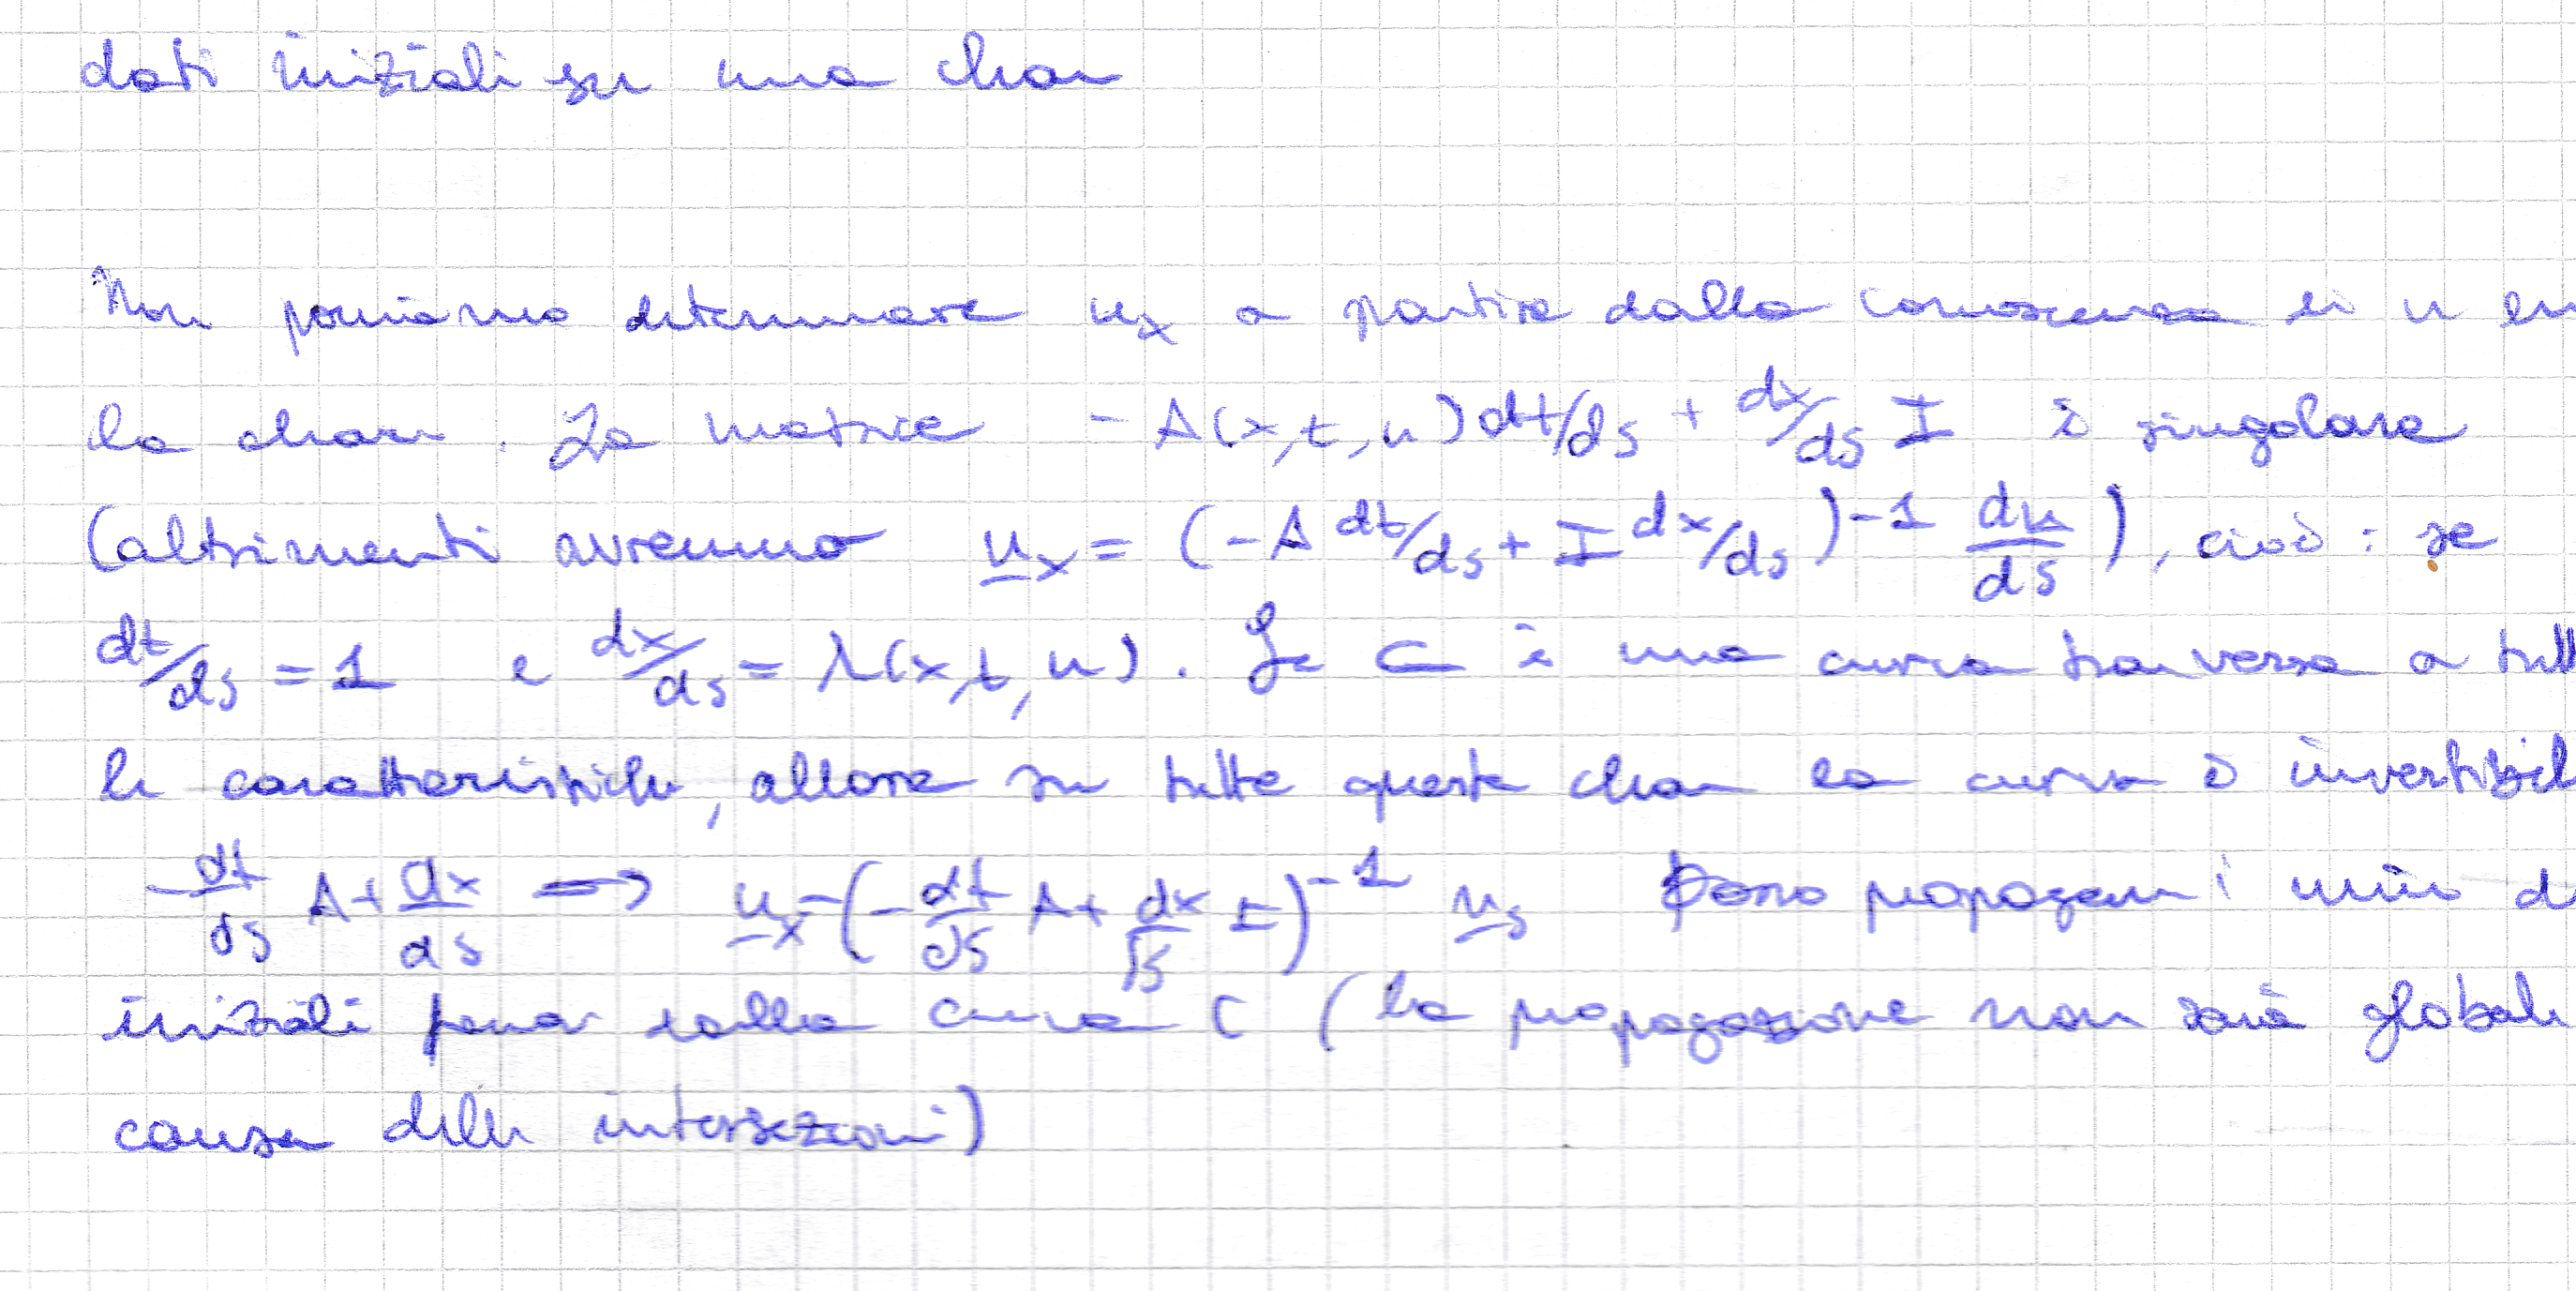 dati iniziali su una char
Non possiamo determinare u_x a partire dalla conoscenza di u su
la char. La matrice - A(x,t,u) dt/ds + dx/ds I è singolare
(altrimenti avremmo u_x = (-A dt/ds + I dx/ds)^-1 du/ds), cioè: se
dt/ds = 1 e dx/ds = λ(x,t,u). Se C è una curva trasversa a tutt
le caratteristiche, allora su tutte queste char la curva è invertibil
-dt/ds A + dx/ds => u_x = (-dt/ds A + dx/ds I)^-1 u_s Posso propagare i miei da
iniziali sulla curva C (la propagazione non sarà globale
causa delle intersezioni)